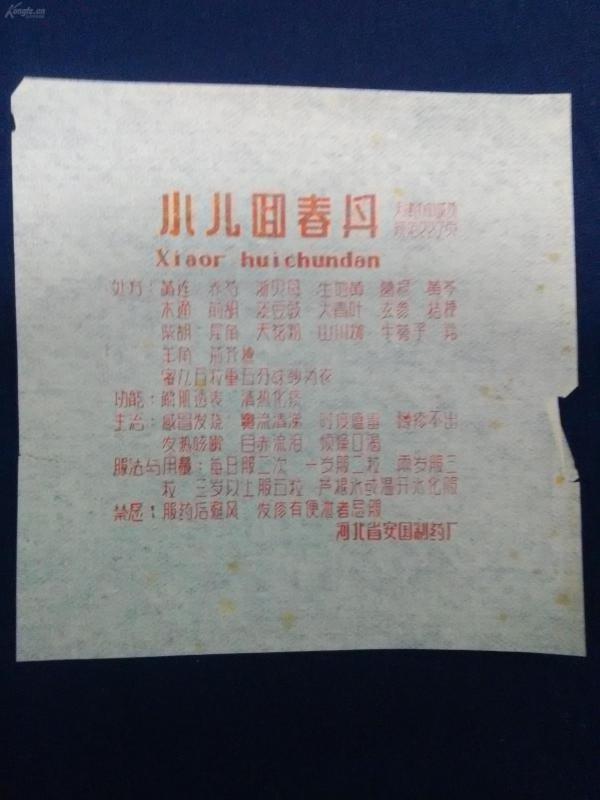 Kongfz.cn
小儿回春丹
Xiaor huichundan
处方：黄连 赤芍 浙贝母 生地黄 黄芩
木通 前胡 淡豆豉 大青叶 玄参 桔梗
柴胡 犀角 天花粉 山川柳 牛蒡子
羊角 荆芥穗
蜜丸百粒重五分 为衣
功能：疏肌透表 清热化痰
主治：感冒发烧 鼻流清涕 时疫瘟 疹不出
发热咳嗽 目赤流泪 烦燥口渴
服法与用量：每日服二次 一岁服二粒 岁服三
粒 三岁以上服五粒 芦根水或温开水化服
禁忌：服药后避风 发疹有便泄者忌服
河北省安国制药厂